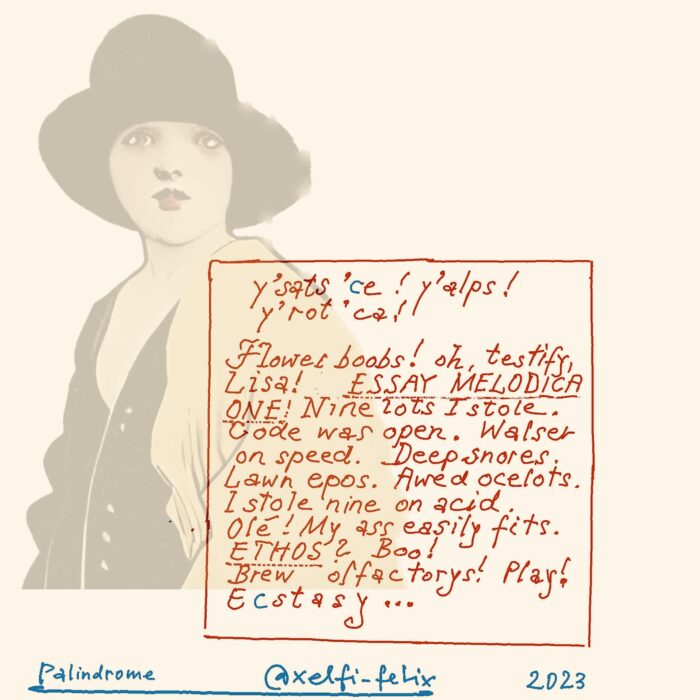 y'sats 'ce ! y'alps !
y'rot 'ca!
Flower boobs! oh, testify,
Lisa! ESSAY MELODICA
ONE! Nine lots I stole.
Code was open. Walser
on speed. Deep snores.
Lawn epos. Awed ocelots.
I stole nine on acid.
Olé! My ass easily fits.
ETHOS? Boo!
Brew olfactorys! Play!
Ecstasy ...
Palindrome @xelfi-felix 2023